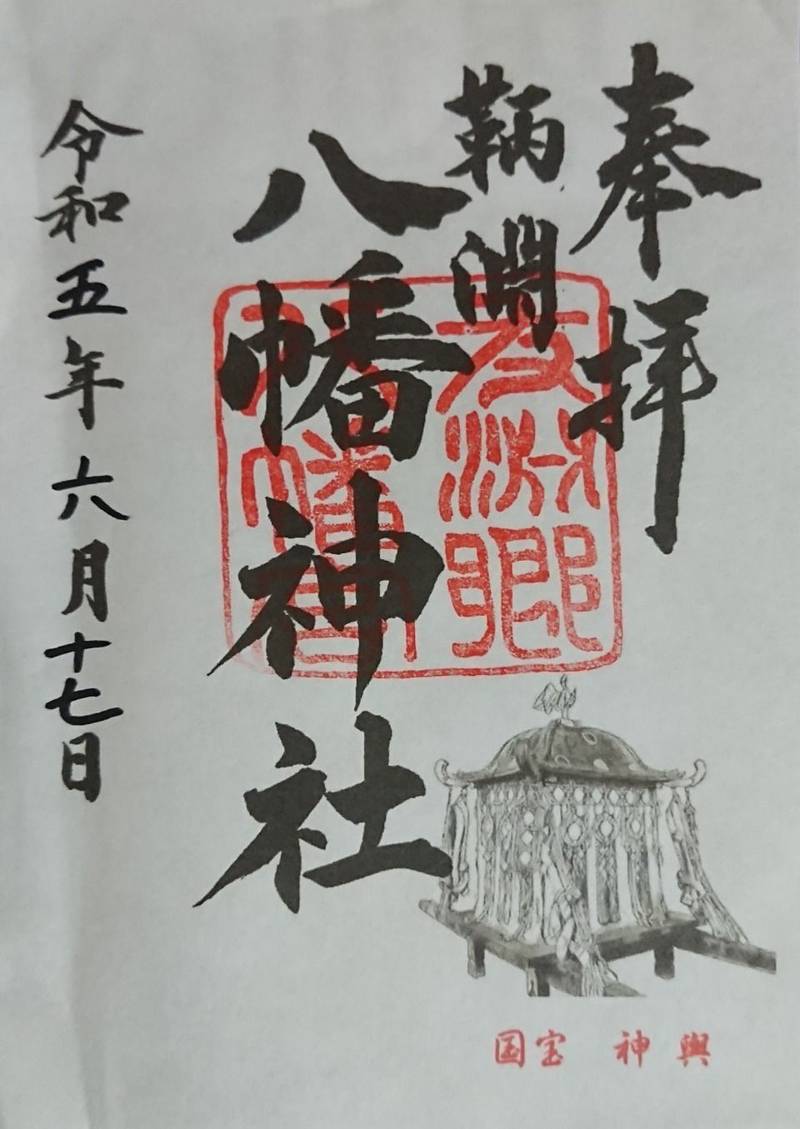 奉拝
鞆淵
八幡神社
令和五年六月十七日
友淵郷
八幡宮
国宝 神輿